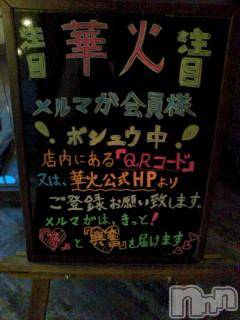 注目 華火 注目
メルマガ会員様
ボシュウ中
店内にある『QRコード』
又は、華火公式HPより
ご登録お願い致します。
メルマガは、きっと!
と『興奮』を届けます